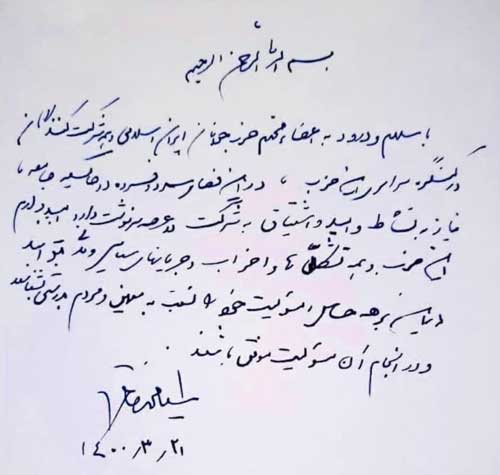 بسم الله الرحمن الرحیم
با سلام و درود به اعضاء محترم حزب جوانان ایران اسلامی و همه شرکت کنندگان
در کنگره سراسری این حزب ، در این فضای سرد و افسرده در حالیکه جامعه ما
نیاز به نشاط و امید و اشتیاق به شرکت در عرصه سرنوشت دارد امیدوارم
این حزب و همه تشکل ها و احزاب و جریانهای سیاسی و مدنی بتوانند
در این برهه حساس مسئولیت خود را نسبت به میهن و مردم بدرستی بشناسند
و در انجام آن مسئولیت موفق باشند
سید محمد خاتمی
۱۴۰۰/۳/۲۱